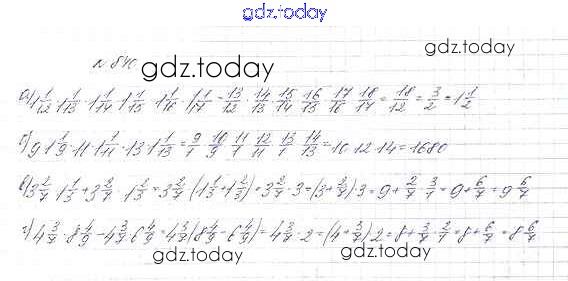 gdz.today
№ 840
gdz.today
gdz.today
а) 1 1/12 · 1 1/13 · 1 1/14 · 1 1/15 · 1 1/16 · 1 1/17 = 13/12 · 14/13 · 15/14 · 16/15 · 17/16 · 18/17 = 18/12 = 3/2 = 1 1/2
б) 9 · 1 1/9 · 11 · 1 1/11 · 13 · 1 1/13 = 9/1 · 10/9 · 11/1 · 12/11 · 13/1 · 14/13 = 10 · 12 · 14 = 1680
в) 3 2/7 · 1 1/3 + 3 2/7 · 1 = 3 2/7 · 3 = (3 + 2/7) 3 = 9 + 2/7 · 3/1 = 9 + 6/7 = 9 6/7
г) 4 3/7 · 8 4/9 - 4 3/7 · 6 4/9 = 4 3/7 (8 4/9 - 6 4/9) = 4 3/7 · 2 = (4 + 3/7) 2 = 8 + 3/7 · 2/1 = 8 + 6/7 = 8 6/7
gdz.today
gdz.today